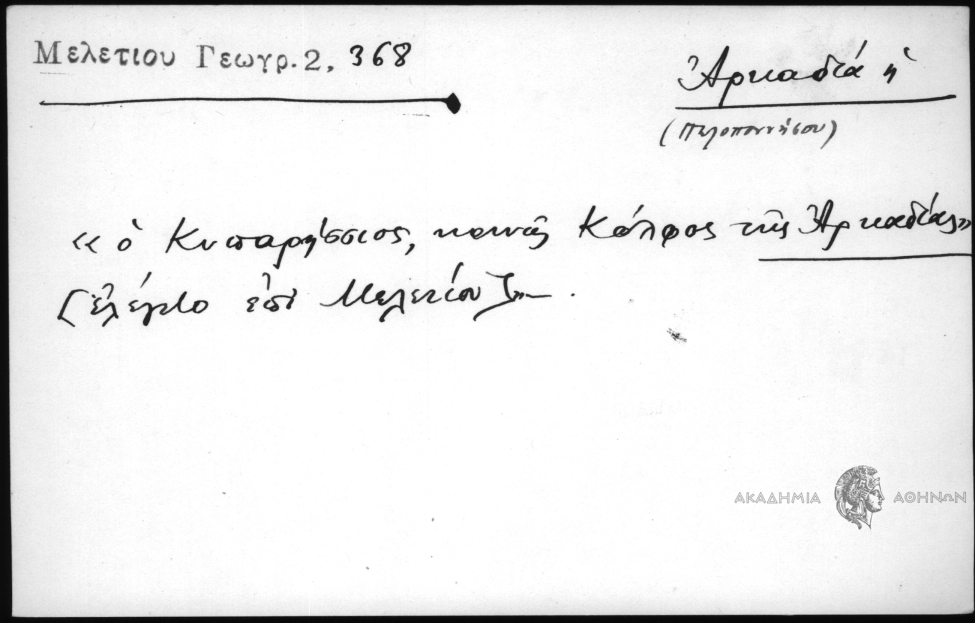 Μελετιου Γεωγρ. 2, 368
Ἀρκαδιά ἡ
(Πελοποννήσου)
«ὁ Κυπαρήσσιος, κοινῶς Κόλφος τῆς Ἀρκαδίας»
[ἐλέγετο ἐπὶ Μελετίου]—.
ΑΚΑΔΗΜΙΑ ΑΘΗΝΩΝ